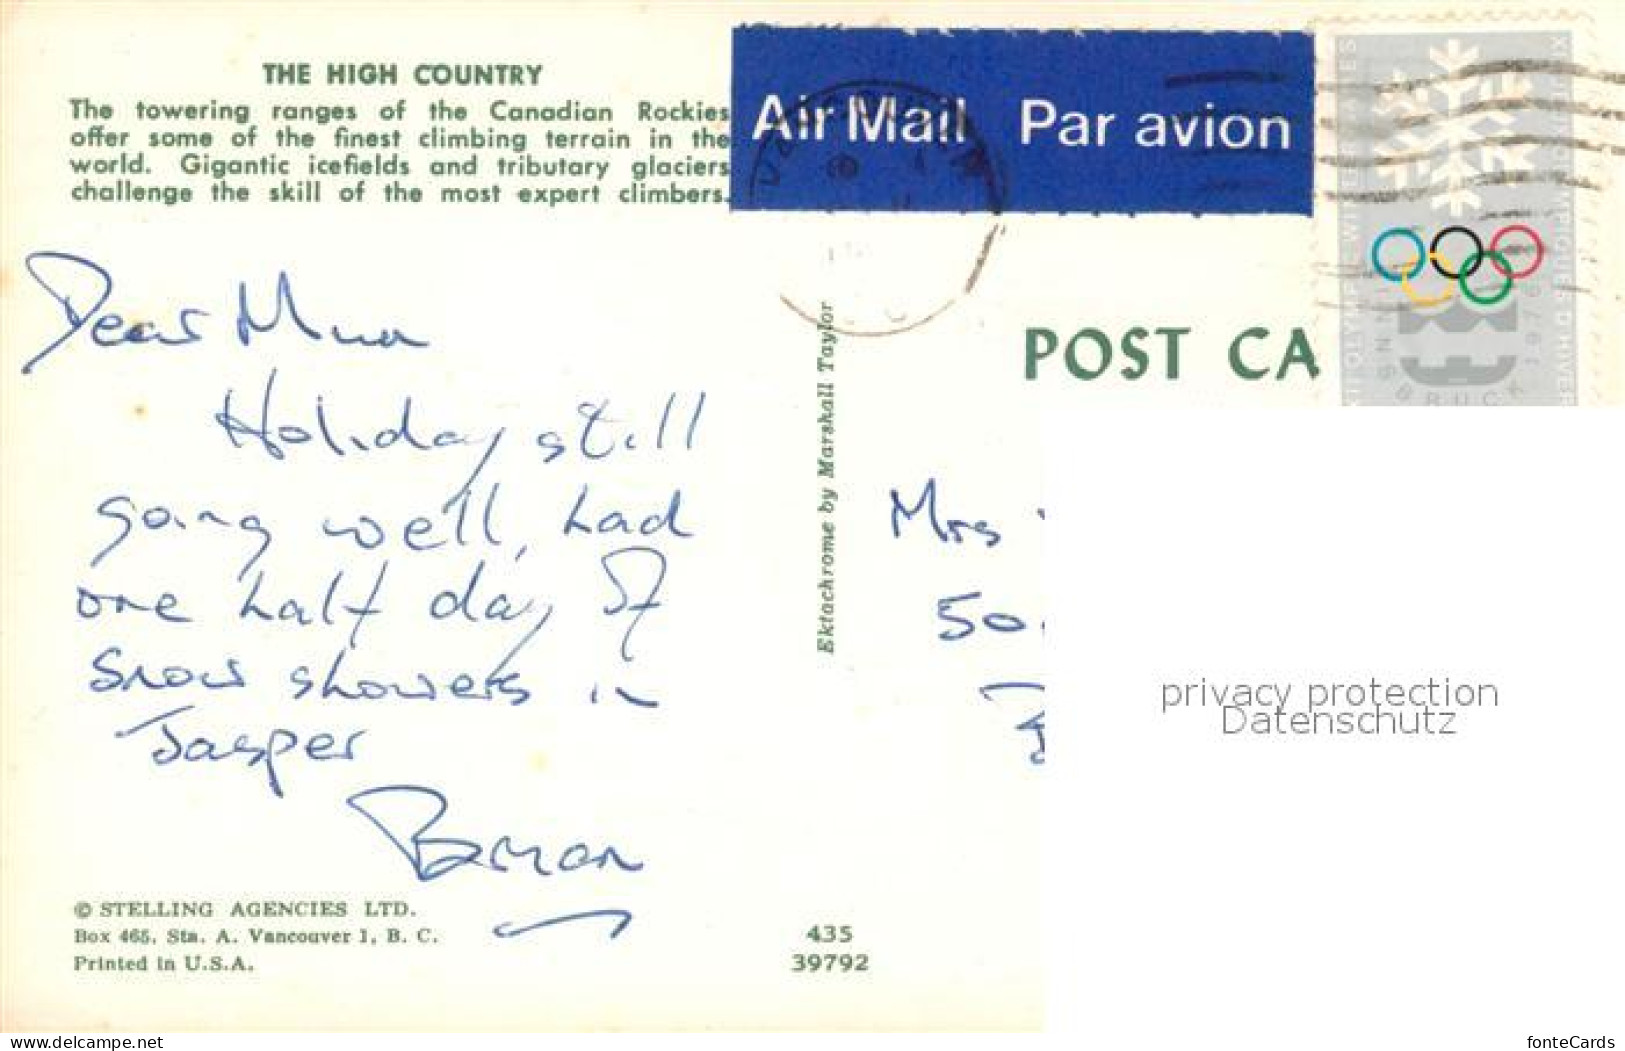 THE HIGH COUNTRY
The towering ranges of the Canadian Rockies
offer some of the finest climbing terrain in the
world. Gigantic icefields and tributary glaciers
challenge the skill of the most expert climbers.
Air Mail Par avion
Dear Mum
Holiday still
going well, had
one half day of
snow showers in
Jasper
Brian
© STELLING AGENCIES LTD.
Box 465, Sta. A. Vancouver 1, B. C.
Printed in U.S.A.
Ektachrome by Marshall Taylor
435
39792
POST CA
INNSBRUCK 1976
Mrs
50
privacy protection
Datenschutz
www.delcampe.net
fonteCards